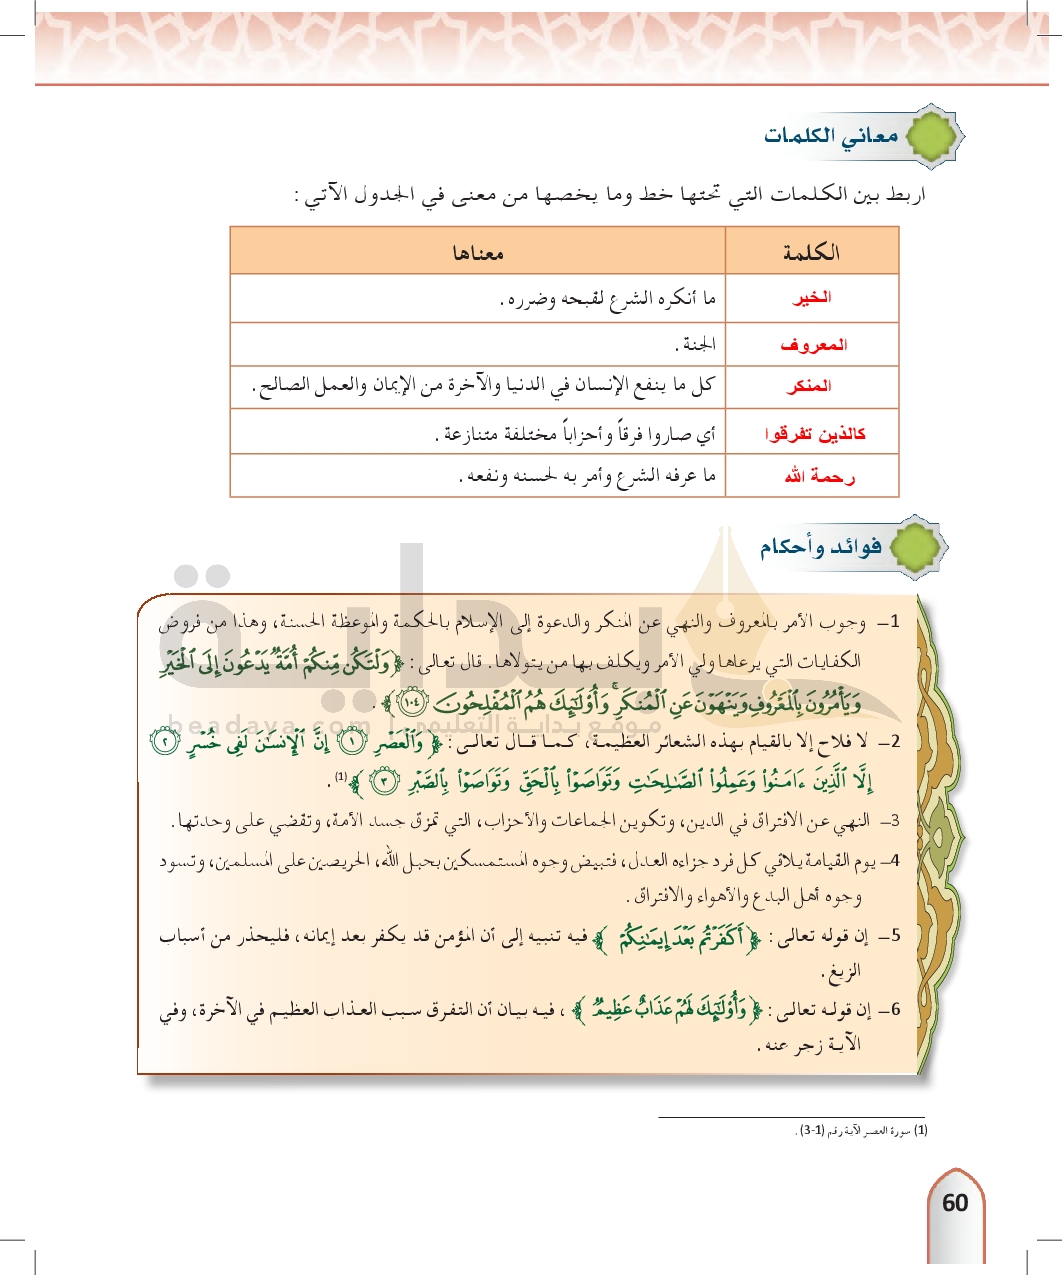 معاني الكلمات
اربط بين الكلمات التي تحتها خط وما يخصها من معنى في الجدول الآتي :
الكلمة معناها
الخير ما أنكره الشرع لقبحه وضرره .
المعروف الجنة .
المنكر كل ما ينفع الإنسان في الدنيا والآخرة من الإيمان والعمل الصالح .
كالذين تفرقوا أي صاروا فرقاً وأحزاباً مختلفة متنازعة .
رحمة الله ما عرفه الشرع وأمر به لحسنه ونفعه .
فوائد وأحكام
بداية
1– وجوب الأمر بالمعروف والنهي عن المنكر والدعوة إلى الإسلام بالحكمة والموعظة الحسنة، وهذا من فروض
الكفايات التي يرعاها ولي الأمر ويكلف بها من يتولاها . قال تعالى : ﴿ وَلْتَكُن مِّنكُمْ أُمَّةٌ يَدْعُونَ إِلَى ٱلْخَيْرِ
وَيَأْمُرُونَ بِٱلْمَعْرُوفِ وَيَنْهَوْنَ عَنِ ٱلْمُنكَرِ ۚ وَأُو۟لَٰٓئِكَ هُمُ ٱلْمُفْلِحُونَ ١٠٤ ﴾ .
موقع بداية التعليمي | beadaya.com
2– لا فلاح إلا بالقيام بهذه الشعائر العظيمة، كما قال تعالى : ﴿ وَٱلْعَصْرِ ١ إِنَّ ٱلْإِنسَٰنَ لَفِى خُسْرٍ ٢
إِلَّا ٱلَّذِينَ ءَامَنُوا۟ وَعَمِلُوا۟ ٱلصَّٰلِحَٰتِ وَتَوَاصَوْا۟ بِٱلْحَقِّ وَتَوَاصَوْا۟ بِٱلصَّبْرِ ٣ ﴾ (1) .
3– النهي عن الافتراق في الدين، وتكوين الجماعات والأحزاب، التي تمزق جسد الأمة، وتقضي على وحدتها .
4– يوم القيامة يلاقي كل فرد جزاءه العدل، فتبيض وجوه المستمسكين بحبل الله، الحريصين على المسلمين، وتسود
وجوه أهل البدع والأهواء والافتراق .
5– إن قوله تعالى : ﴿ أَكَفَرْتُم بَعْدَ إِيمَٰنِكُمْ ﴾ فيه تنبيه إلى أن المؤمن قد يكفر بعد إيمانه، فليحذر من أسباب
الزيغ .
6– إن قوله تعالى : ﴿ وَأُو۟لَٰٓئِكَ لَهُمْ عَذَابٌ عَظِيمٌ ﴾ ، فيه بيان أن التفرق سبب العذاب العظيم في الآخرة، وفي
الآية زجر عنه .
(1) سورة العصر الآية رقم (1-3) .
60